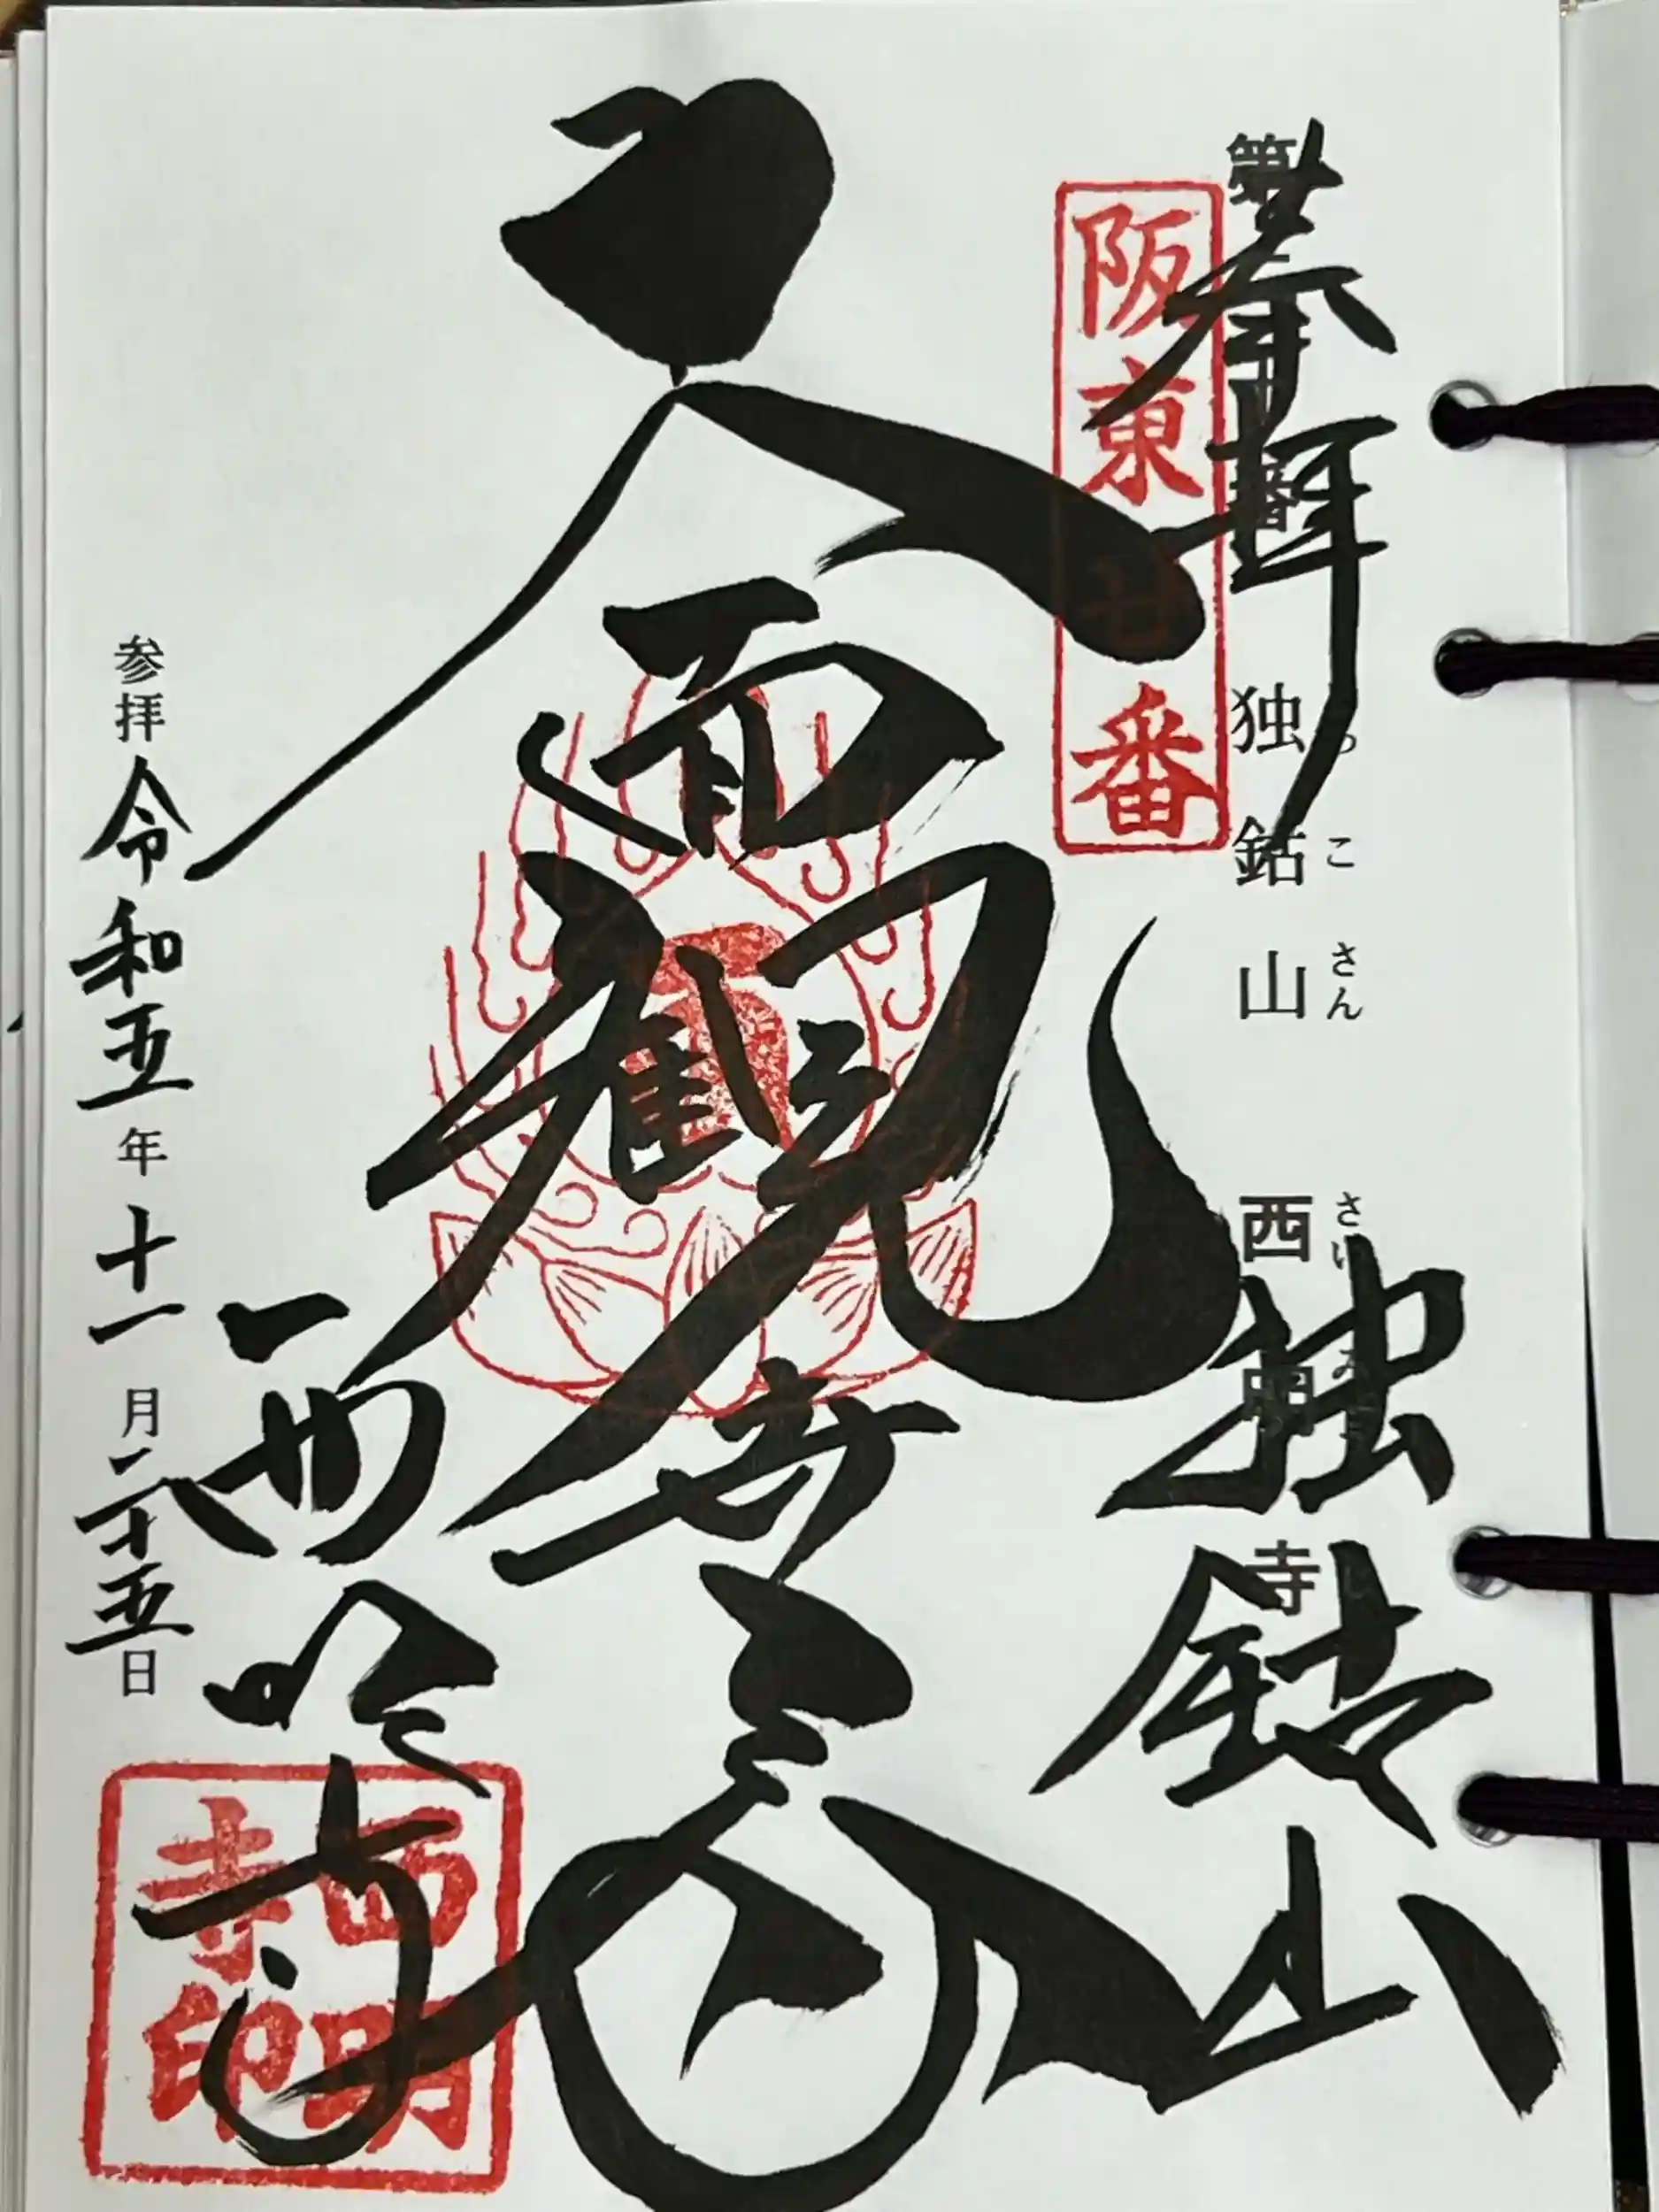 奉拝
独鈷山
第二十番 独鈷山 西明寺
っ こ さん さい
阪東廿番
面観世音
西明寺
西明寺印
参拝 令和五年十一月二十五日